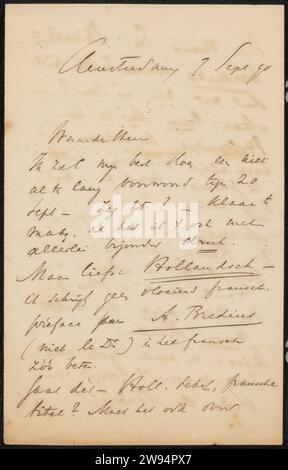 Amsterdam 7 Sept 90
Waarde Heer
Ik zal mijn best doen een niet
al te lang voorwoord tegen 20
Sept — klaar te
maken, al heb ik 't ook met
allerlei bijzonder druk.
Maar liefst Hollandsch —
ik schrijf geen vloeiend fransch.
préface par A. Bredius
(niet le Dr) is het fransch
zóó beter.
Gaat dit — Holl. tekst, fransche
titel? Moet het ook over
alamy
Image ID: 2W94PX7
www.alamy.com